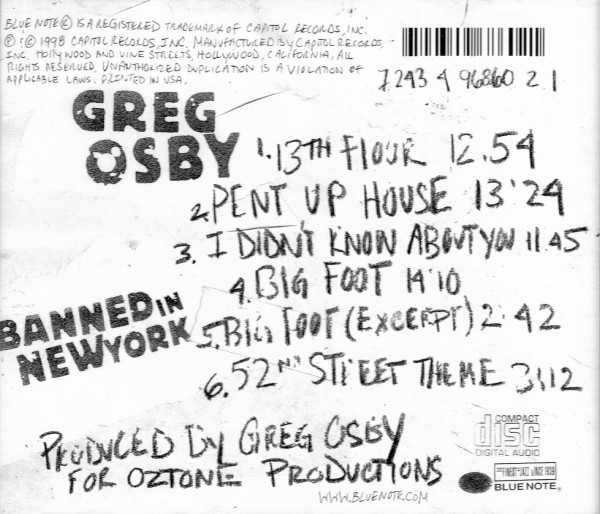 BLUE NOTE® IS A REGISTERED TRADEMARK OF CAPITOL RECORDS, INC.
℗ © 1998 CAPITOL RECORDS, INC. MANUFACTURED BY CAPITOL RECORDS,
INC. HOLLYWOOD AND VINE STREETS, HOLLYWOOD, CALIFORNIA, ALL
RIGHTS RESERVED, UNAUTHORIZED DUPLICATION IS A VIOLATION OF
APPLICABLE LAWS. PRINTED IN USA.
7243 4 96860 2 1
GREG
OSBY
1. 13TH FLOOR 12.54
2. PENT UP HOUSE 13'24
3. I DIDN'T KNOW ABOUT YOU 11.45
4. BIG FOOT 14'10
BANNED IN
NEW YORK
5. BIG FOOT (EXCERPT) 2:42
6. 52ND STREET THEME 3:12
PRODUCED BY GREG OSBY
FOR OZTONE PRODUCTIONS
WWW.BLUENOTE.COM
COMPACT
disc
DIGITAL AUDIO
THE FINEST IN JAZZ SINCE 1939
BLUE NOTE®